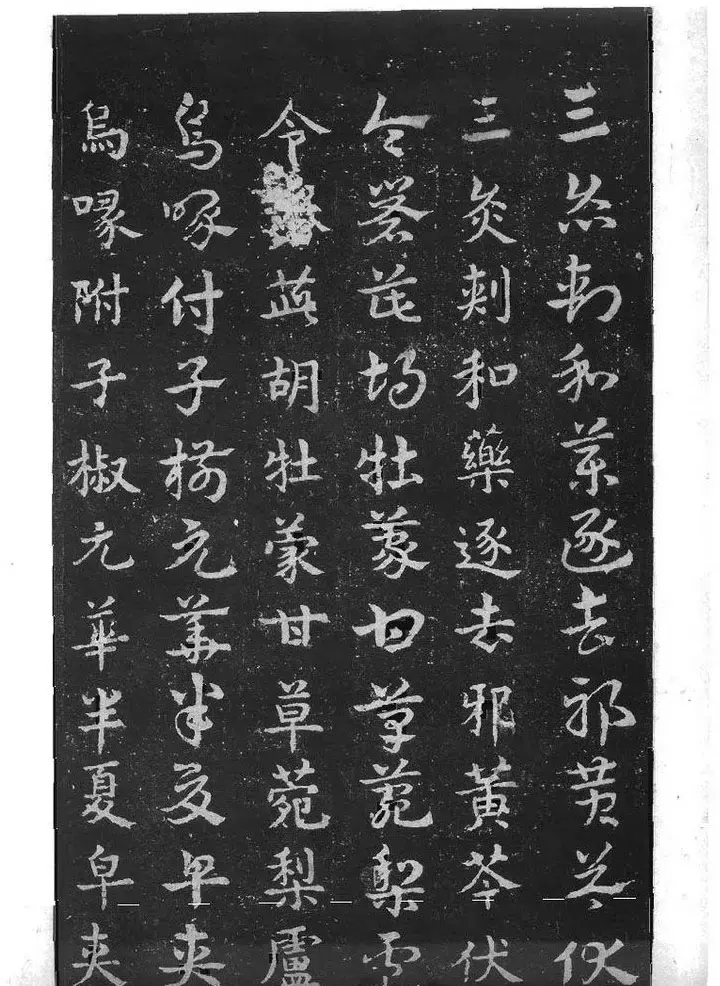 三灸刺和藥逐去邪黃芩伏
三灸刺和藥逐去邪黃芩伏
令礜茈胡牡蒙甘草菀梨盧
令茈胡牡蒙甘草菀梨盧
烏喙付子椒元華半夏皁夾
烏喙附子椒元華半夏皁夾